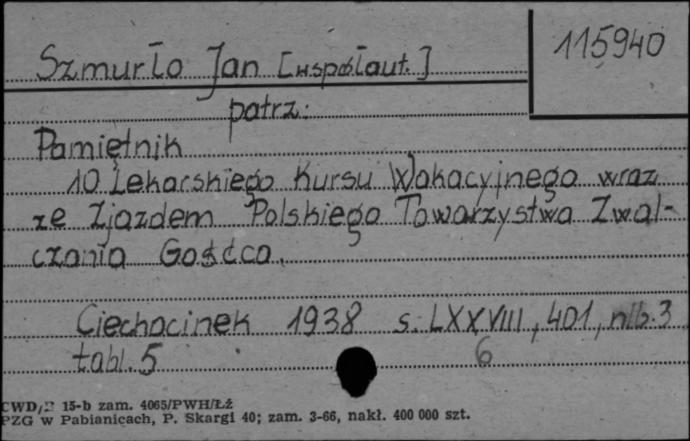 115940
Szmurło Jan [współaut.]
patrz:
Pamiętnik
10 Lekarskiego Kursu Wakacyjnego wraz
ze Zjazdem Polskiego Towarzystwa Zwal-
czania Gośćca.
Ciechocinek 1938 s. LXXVIII, 401, nlb. 3
tabl. 5 6
15-b zam. 4065/PWH/Łż
PZG w Pabianicach, P. Skargi 40; zam. 3-66, nakł. 400 000 szt.